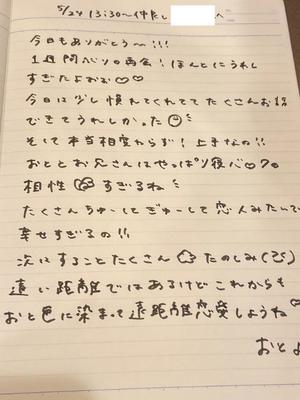 5/24 13:30〜仲良し
へ
今日もありがとう〜!!!
1週間ぶりの再会！ほんとにうれし
すぎたよぉぉ♡♡
今日は少し慣れてくれてて たくさんお話
できてうれしかった
そして本当相変わらず！上手なの!!
おととお兄さんはやっぱり
相性 すぎるね
たくさんちゅーしてぎゅーして恋人みたいで
幸せすぎるの!!
次にすることたくさん たのしみ(び)
遠い距離ではあるけどこれからも
おと色に染まって遠距離恋愛しようね
おとよ